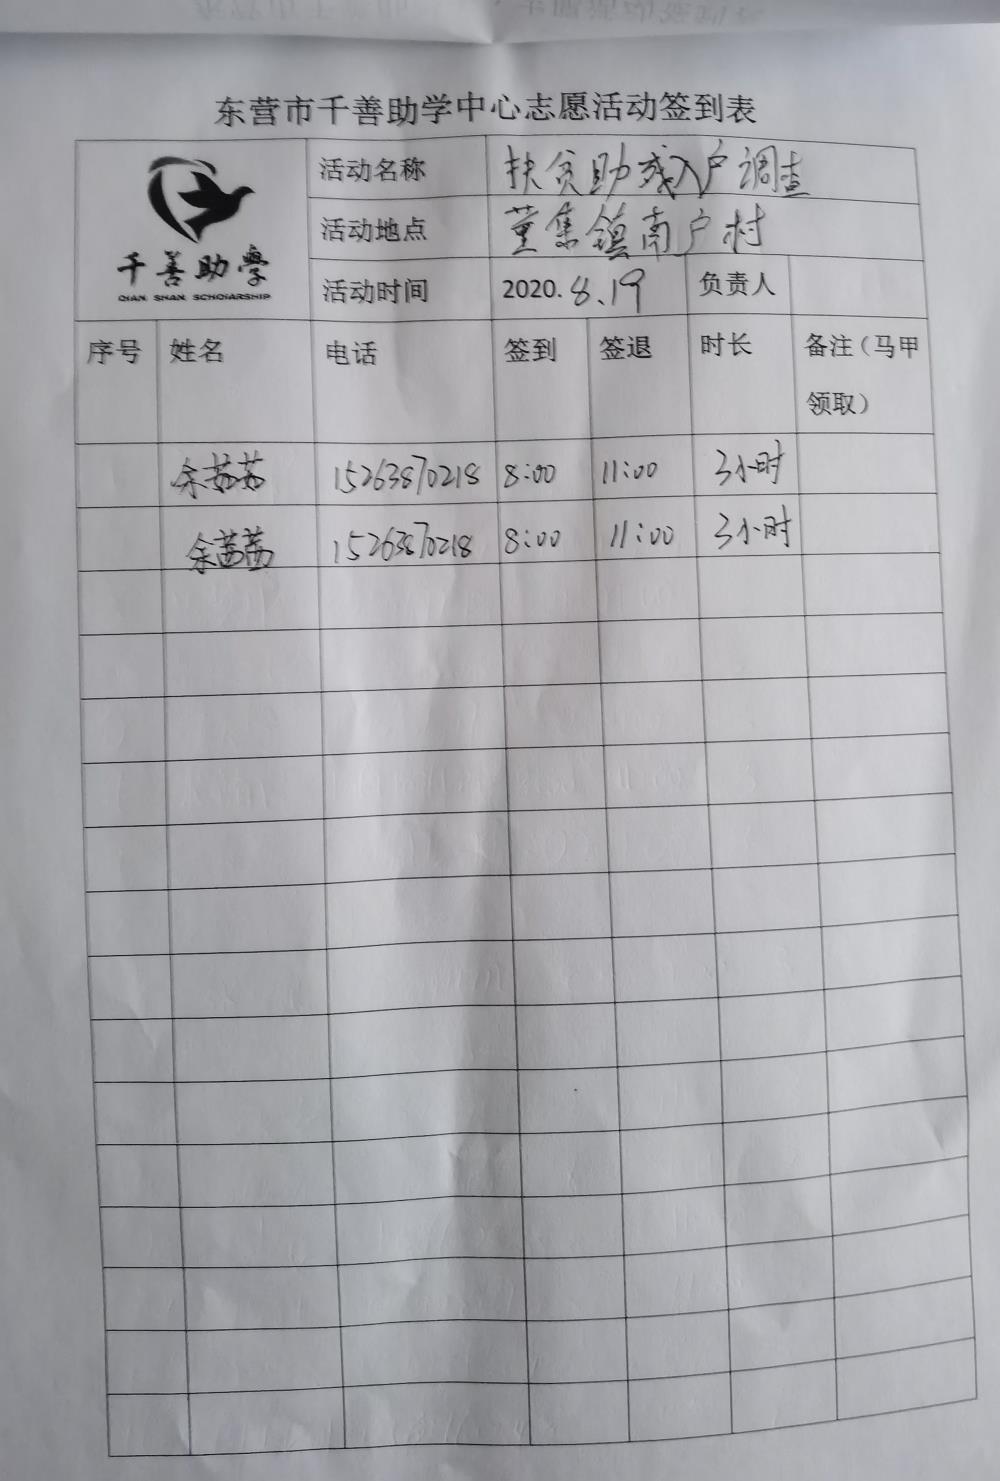 东营市千善助学中心志愿活动签到表
千善助學
QIAN SHAN SCHOIARSHIP
活动名称 扶贫助残入户调查
活动地点 董集镇南户村
活动时间 2020.8.19 负责人
序号 姓名 电话 签到 签退 时长 备注（马甲
领取）
余茹茹 15263870218 8:00 11:00 3小时
余茜茜 15263870218 8:00 11:00 3小时